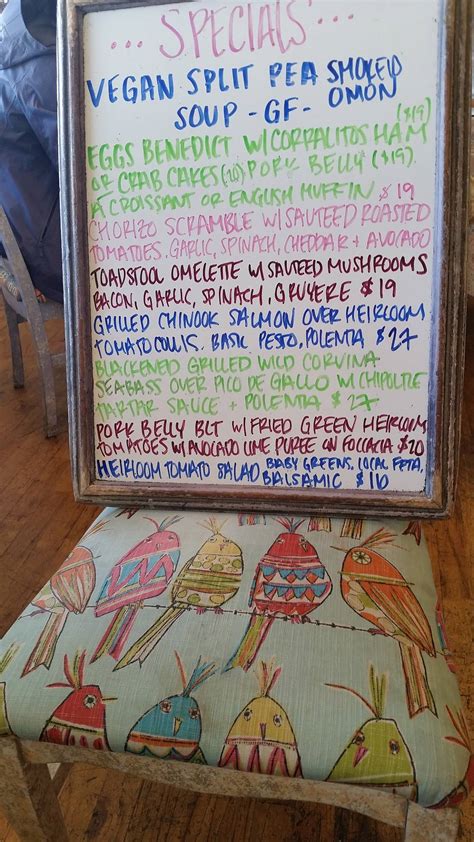 ... SPECIALS ...
VEGAN SPLIT PEA SMOKED
SOUP - GF - OMON
EGGS BENEDICT W/ CORRALITOS HAM ($19)
OR CRAB CAKES (20), PORK BELLY ($19).
A CROISSANT OR ENGLISH MUFFIN $19
CHORIZO SCRAMBLE W/ SAUTEED ROASTED
TOMATOES, GARLIC, SPINACH, CHEDDAR + AVOCADO
TOADSTOOL OMELETTE W/ SAUTEED MUSHROOMS
BACON, GARLIC, SPINACH, GRUYERE $19
GRILLED CHINOOK SALMON OVER HEIRLOOM
TOMATO COLLIS. BASIL PESTO, POLENTA $27
BLACKENED GRILLED WILD CORVINA
SEABASS OVER PICO DE GALLO W/ CHIPOLTLE
TARTAR SAUCE + POLENTA $27
PORK BELLY BLT W/ FRIED GREEN HEIRLOOM
TOMATOES W/ AVOCADO LIME PUREE ON FOCCACIA $20
HEIRLOOM TOMATO SALAD BABY GREENS, LOCAL FETA,
BALSAMIC $10